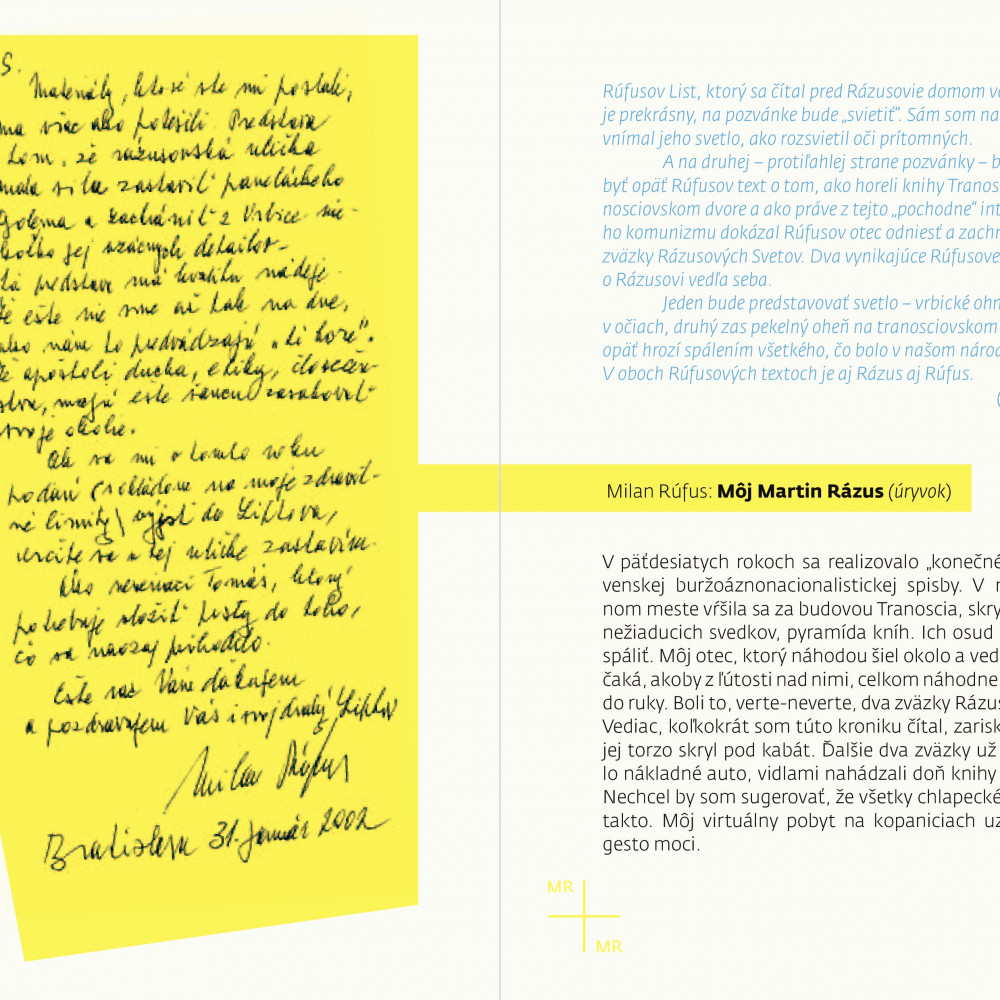 S.
Materiály, ktoré ste mi poslali,
ma viac ako potešili. Predstava
tom, že rázusovská ulička
mala silu zastaviť panelákového
Golema a zachrániť z Vrbice nie-
koľko jej vzácnych detailov –
tá predstava má kvalitu nádeje.
že ešte nie sme až tak na dne,
ako nám to predvádzajú „tí hore“.
že apoštoli ducha, etiky, človečen-
stva, majú ešte šancu zasahovať
svoje okolie.
Ak sa mi v tomto roku
podarí (vzhľadom na moje zdravot-
né limity) výjsť do Liptova,
určite sa v tej uličke zastavím.
Ako neveriaci Tomáš, ktorý
potrebuje vložiť prsty do toho,
čo sa naozaj prihodilo.
Ešte raz Vám ďakujem
a pozdravujem Vás i svoj drahý Liptov
Milan Rúfus
Bratislava 31. január 2002
Rúfusov List, ktorý sa čítal pred Rázusovie domom
je prekrásny, na pozvánke bude „svietiť“. Sám som
vnímal jeho svetlo, ako rozsvietil oči prítomných.
A na druhej – protiľahlej strane pozvánky –
byť opäť Rúfusov text o tom, ako horeli knihy
nosciovskom dvore a ako práve z tejto „pochodne“
ho komunizmu dokázal Rúfusov otec odniesť a
zväzky Rázusových Svetov. Dva vynikajúce
o Rázusovi vedľa seba.
Jeden bude predstavovať svetlo – vrbické
v očiach, druhý zas pekelný oheň na tranosciovskom
opäť hrozí spálením všetkého, čo bolo v našom
V oboch Rúfusových textoch je aj Rázus aj Rúfus.
(
Milan Rúfus: Môj Martin Rázus (úryvok)
V päťdesiatych rokoch sa realizovalo „konečné
venskej buržoáznonacionalistickej spisby. V
nom meste vŕšila sa za budovou Tranoscia,
nežiaducich svedkov, pyramída kníh. Ich osud
spáliť. Môj otec, ktorý náhodou šiel okolo a
čaká, akoby z ľútosti nad nimi, celkom náhodne
do ruky. Boli to, verte-neverte, dva zväzky
Vediac, koľkokrát som túto kroniku čítal,
jej torzo skryl pod kabát. Ďalšie dva zväzky už
lo nákladné auto, vidlami nahádzali doň knihy
Nechcel by som sugerovať, že všetky chlapecké
takto. Môj virtuálny pobyt na kopaniciach
gesto moci.
MR
MR